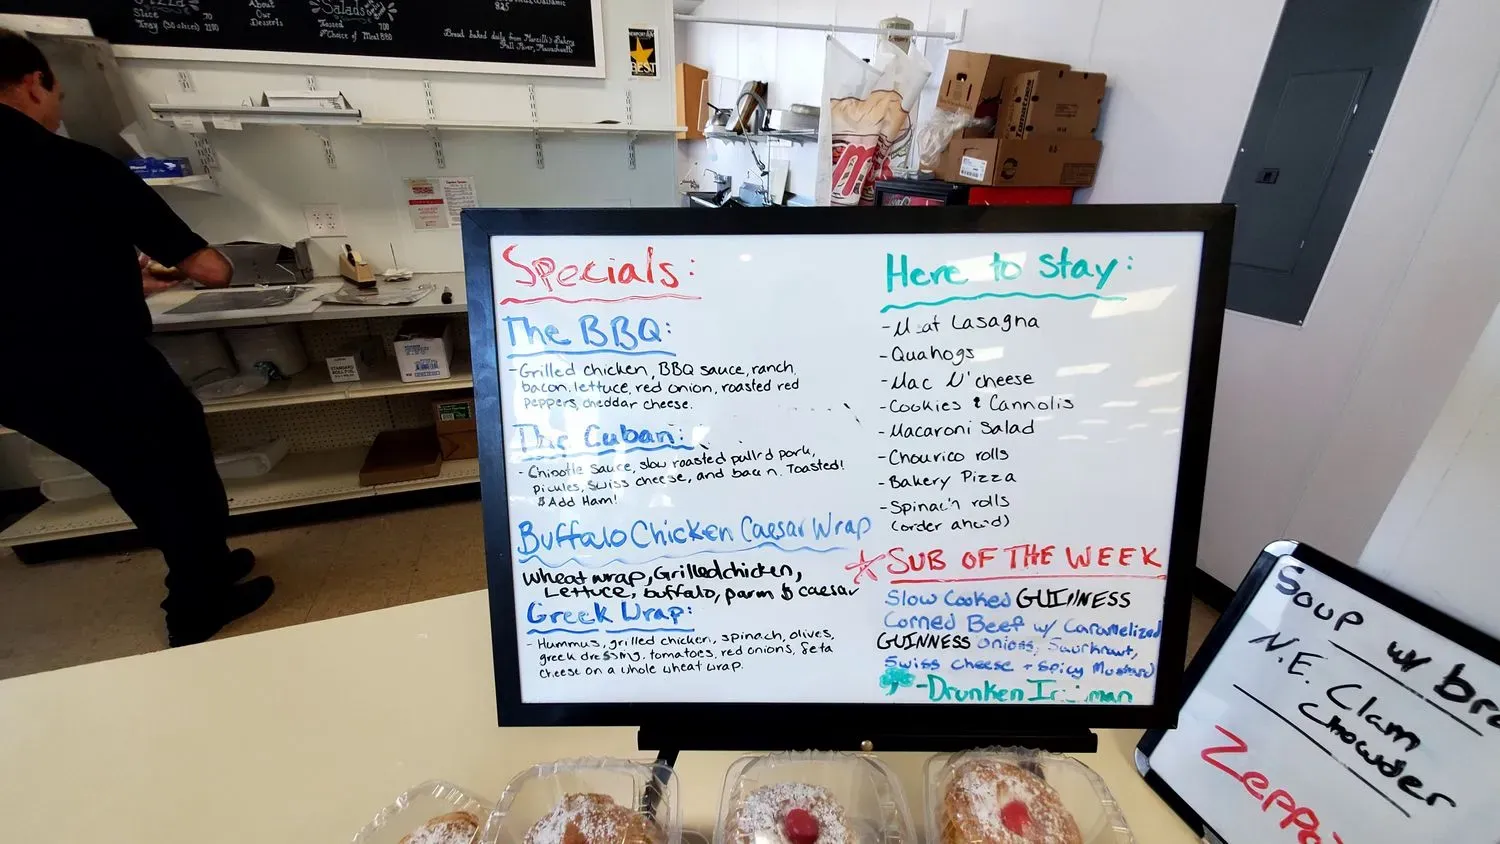 Slice 70
Tray (30 slices)
About
Our
Desserts
Salads
Tossed 700
Bread baked daily from Marcelli's Bakery
Fall River, Massachusetts
BEST
Specials:
The BBQ:
- Grilled chicken, BBQ sauce, ranch,
bacon, lettuce, red onion, roasted red
peppers, cheddar cheese.
The Cuban:
- Chipotle sauce, slow roasted pulled pork,
pickles, swiss cheese, and bacon. Toasted!
$ Add Ham!
Buffalo Chicken Caesar Wrap
Wheat wrap, Grilled chicken,
Lettuce, buffalo, parm & caesar
Greek Wrap:
- Hummus, grilled chicken, spinach, olives,
greek dressing, tomatoes, red onions, feta
cheese on a whole wheat wrap.
Here to Stay:
- Meat Lasagna
- Quahogs
- Mac N' cheese
- Cookies & Cannolis
- Macaroni Salad
- Chourico rolls
- Bakery Pizza
- Spinach rolls
(order ahead)
SUB OF THE WEEK
Slow Cooked GUINNESS
Corned Beef w/ Caramelized
GUINNESS Onions, Saurkraut,
Swiss Cheese + Spicy Mustard
- Drunken Irishman
Soup w/
N.E. Clam
Chowder